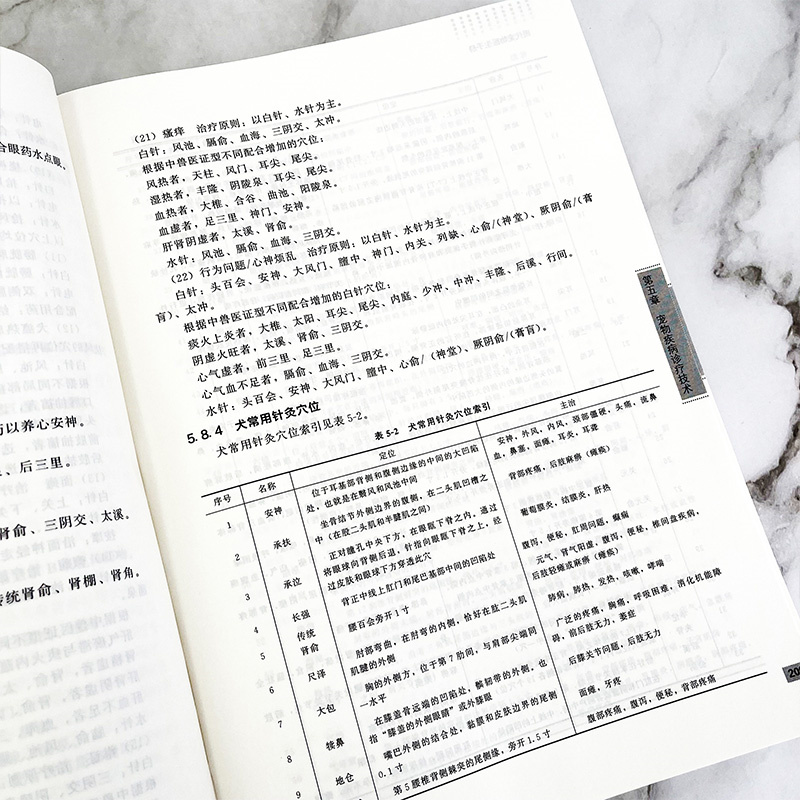 合眼药水点眼。
药以养心安神。
、后三里。
肾俞、三阴交、太溪。
传统肾俞、肾棚、肾角。
(21) 瘙痒 治疗原则:以白针、水针为主。
白针:风池、膈俞、血海、三阴交、太冲。
根据中兽医证型不同配合增加的穴位:
风热者,天柱、风门、耳尖、尾尖。
湿热者,丰隆、阴陵泉、耳尖、尾尖。
血热者,大椎、合谷、曲池、阳陵泉。
血虚者,足三里、神门、安神。
肝肾阴虚者,太溪、肾俞。
水针:风池、膈俞、血海、三阴交。
(22) 行为问题/心神烦乱 治疗原则:以白针、水针为主。
白针:头百会、安神、大风门、膻中、神门、内关、列缺、心俞/(神堂)、厥阴俞/(膏
肓)、太冲。
根据中兽医证型不同配合增加的白针穴位:
痰火上炎者,大椎、太阳、耳尖、尾尖、内庭、少冲、中冲、丰隆、后溪、行间。
阴虚火旺者,太溪、肾俞、三阴交。
心气虚者,前三里、足三里。
心气血不足者,膈俞、血海、三阴交。
水针:头百会、安神、大风门、膻中、心俞/(神堂)、厥阴俞/(膏肓)。
5.8.4 犬常用针灸穴位
犬常用针灸穴位索引见表5-2。
表5-2 犬常用针灸穴位索引
序号 名称 定位 主治
1 安神 位于耳基部背侧和腹侧边缘的中间的大凹陷
处,也就是在翳风和风池中间
安神,外风,内风,颈部僵硬,头痛,流鼻
血,鼻塞,面瘫,耳炎,耳聋
2 承扶 坐骨结节外侧边界的腹侧,在二头肌凹槽之
中(在股二头肌和半腱肌之间)
背部疼痛,后肢麻痹(瘫痪)
3 承泣 正对瞳孔中央下方,在眼眶下脊之内,通过
将眼球向背侧后退,针指向眼眶下脊之上,经
过皮肤和眼球下方穿透此穴
葡萄膜炎,结膜炎,肝热
4 长强 背正中线上肛门和尾巴基部中间的凹陷处
腹泻,便秘,肛周问题,癫痫
5 传统
肾俞
腰百会旁开1寸
元气、肾气阳虚,腹泻,便秘,椎间盘疾病,
后肢轻瘫或麻痹(瘫痪)
6 尺泽 肘部弯曲,在肘弯的内侧,恰好在肱二头肌
肌腱的外侧
肺病,肺热,发热,咳嗽,哮喘
7 大包 胸的外侧方,位于第7肋间,与肩部尖端同
一水平
广泛的疼痛,胸痛,呼吸困难,消化机能障
碍,前后肢无力,萎症
8 犊鼻 在膝盖背远端的凹陷处,髌韧带的外侧,也
指“膝盖的外侧眼睛”或外膝眼
后膝关节问题,后肢无力
9 地仓 嘴巴外侧的结合处,黏膜和皮肤边界的尾侧
0.1寸
面瘫,牙疼
第5腰椎背侧棘突的尾侧缘,旁开1.5寸
腹部疼痛,腹泻,便秘,背部疼痛
第五章 宠物疾病诊疗技术